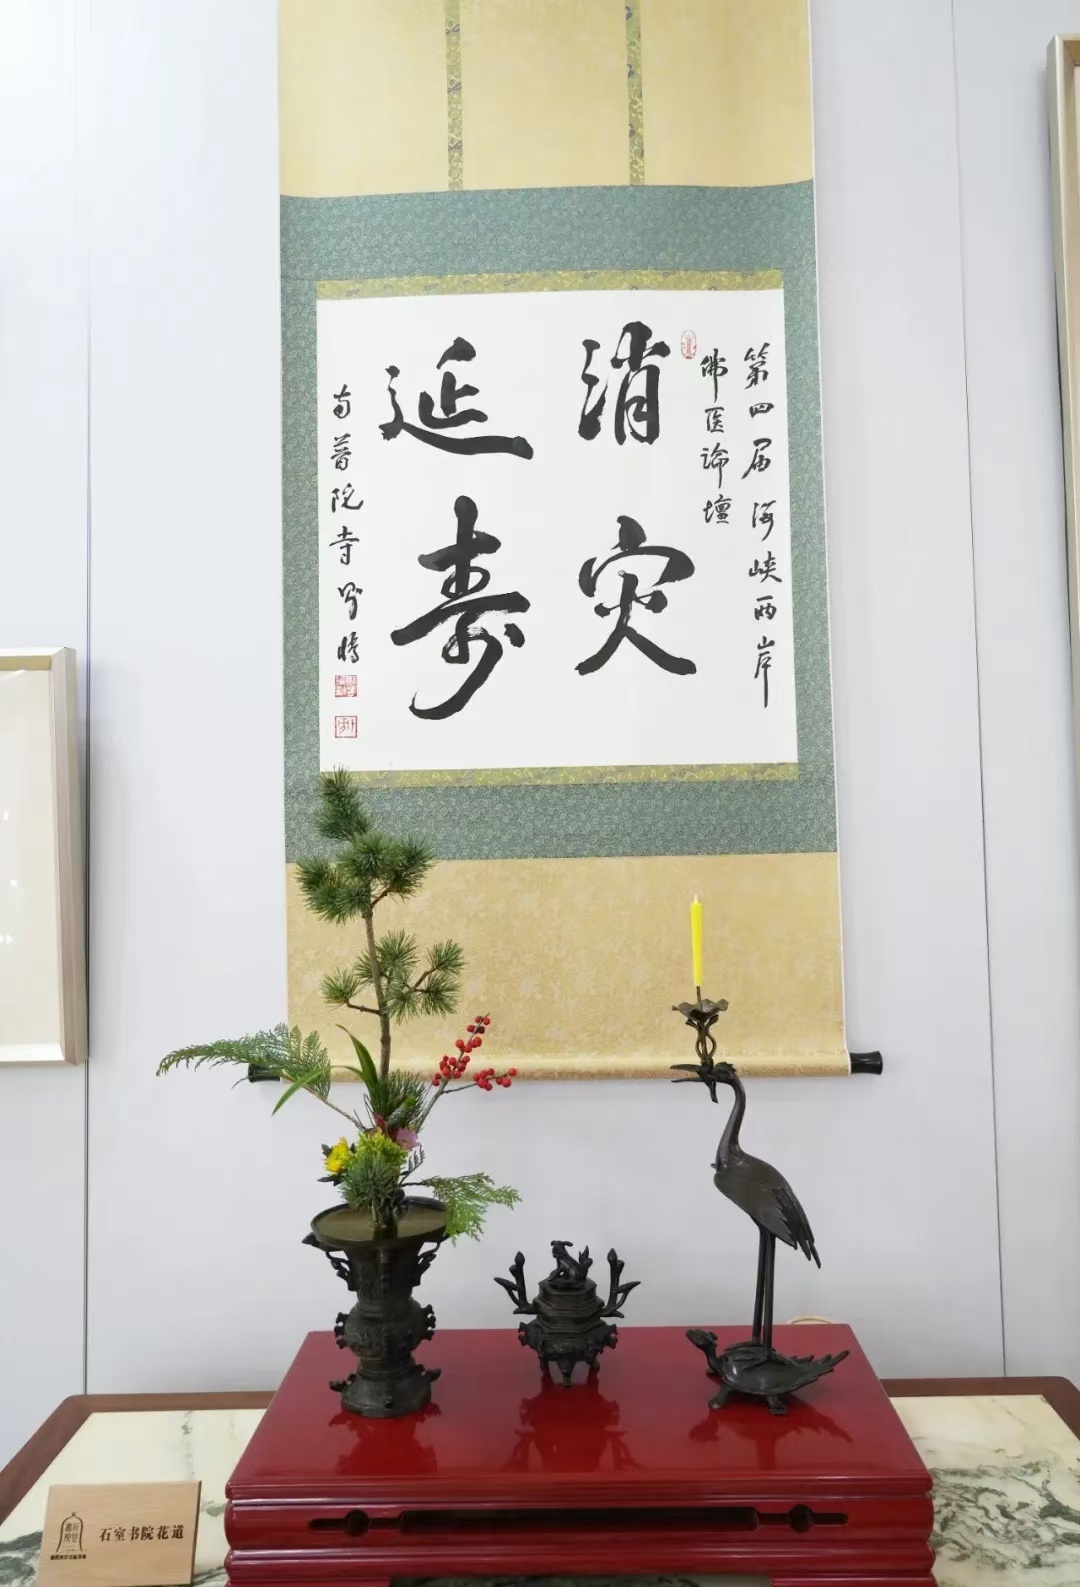 第四届海峡西岸
佛医论坛
消灾
延寿
南普陀寺
石室书院花道